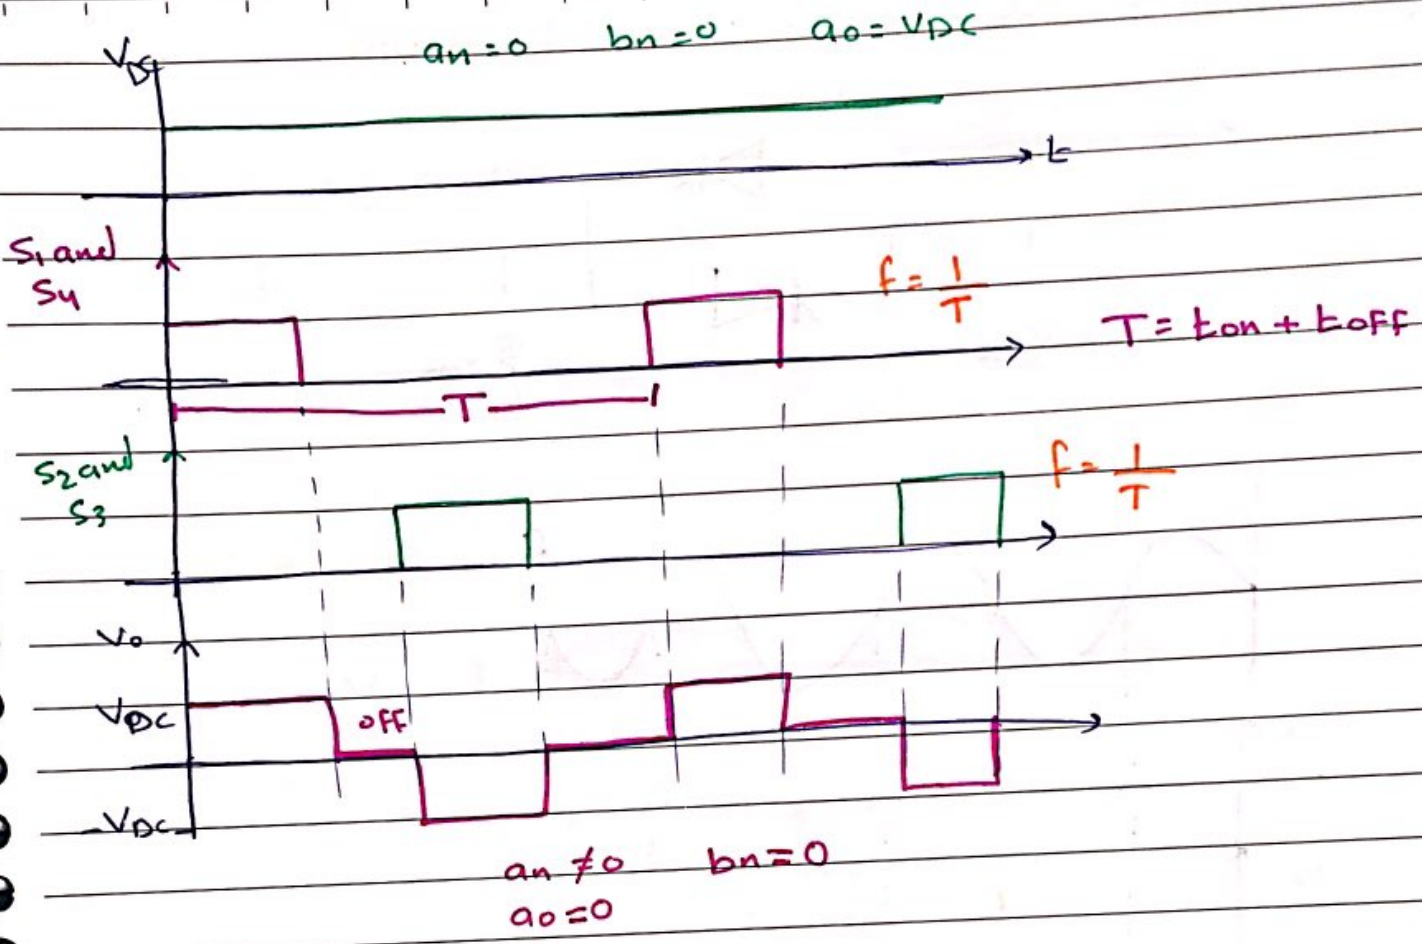 an=0 bn=0 a0=VDC
VDC
t
S1 and
S4
f=1/T
T= ton + toff
T
S2 and
S3
f=1/T
Vo
VDC
OFF
-VDC
an ≠0 bn=0
a0=0